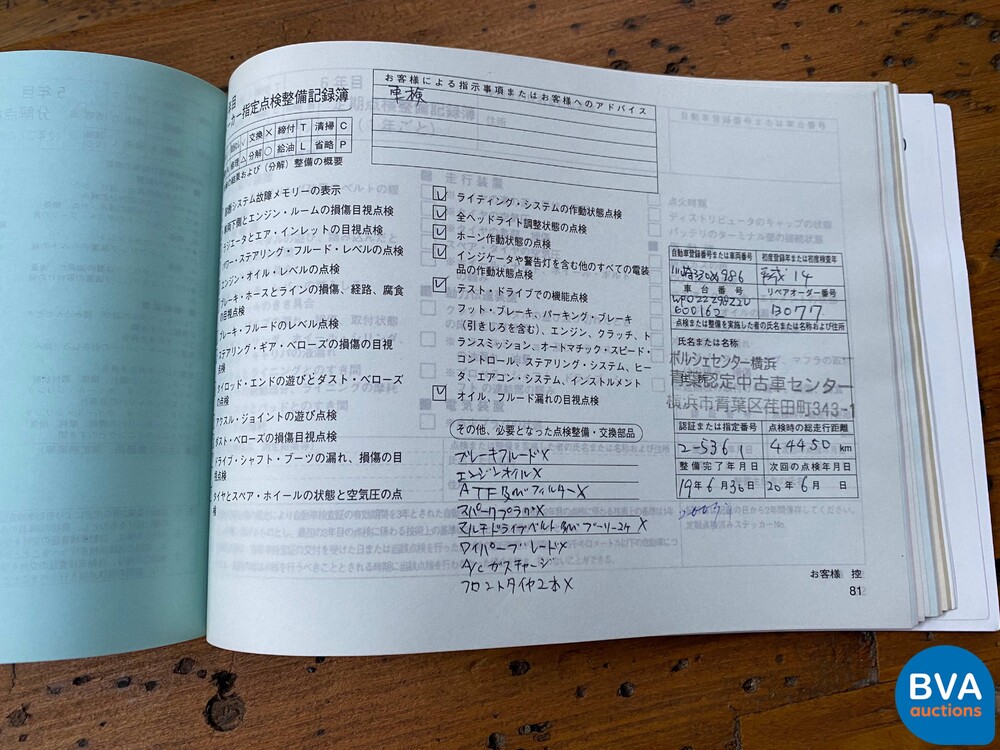 お客様による指示事項またはお客様へのアドバイス
車検
カー指定点検整備記録簿
交換 × 締付 T 清掃 C
修理 △ 分解 ○ 給油 L 省略 P
結果および（分解）整備の概要
システム故障メモリーの表示
下側とエンジン・ルームの損傷目視点検
ジエータとエア・インレットの目視点検
ワー・ステアリング・フルード・レベルの点検
エンジン・オイル・レベルの点検
ブレーキ・ホースとラインの損傷、経路、腐食
の目視点検
ブレーキ・フルードのレベル点検
ステアリング・ギア・ベローズの損傷の目視
点検
タイロッド・エンドの遊びとダスト・ベローズ
の点検
アクスル・ジョイントの遊び点検
ダスト・ベローズの損傷目視点検
ドライブ・シャフト・ブーツの漏れ、損傷の目
視点検
タイヤとスペア・ホイールの状態と空気圧の点
検
ライティング・システムの作動状態点検
全ヘッドライト調整状態の点検
ホーン作動状態の点検
インジケータや警告灯を含む他のすべての電装
品の作動状態点検
テスト・ドライブでの機能点検
フット・ブレーキ、パーキング・ブレーキ
（引きしろを含む）、エンジン、クラッチ、ト
ランスミッション、オートマチック・スピード・
コントロール、ステアリング・システム、ヒー
タ、エアコン・システム、インストルメント
オイル、フルード漏れの目視点検
その他、必要となった点検整備・交換部品
ブレーキフルード×
エンジンオイル×
ATF及びフィルター×
スパークプラグ×
マルチドライブベルト及びプーリー2ケ ×
ワイパーブレード×
A/cガスチャージ
フロントタイヤ2本×
自動車登録番号または車両番号 初度登録年または初度検査年
平成14
車台番号 リペアオーダー番号
600162 13077
点検または整備を実施した者の氏名または名称および住所
氏名または名称
ポルシェセンター横浜
青葉認定中古車センター
横浜市青葉区荏田町343-1
認証または指定番号 点検時の総走行距離
2-5361 44450 km
整備完了年月日 次回の点検年月日
19年6月30日 20年6月 日
お客様 控
81
BVA
auctions